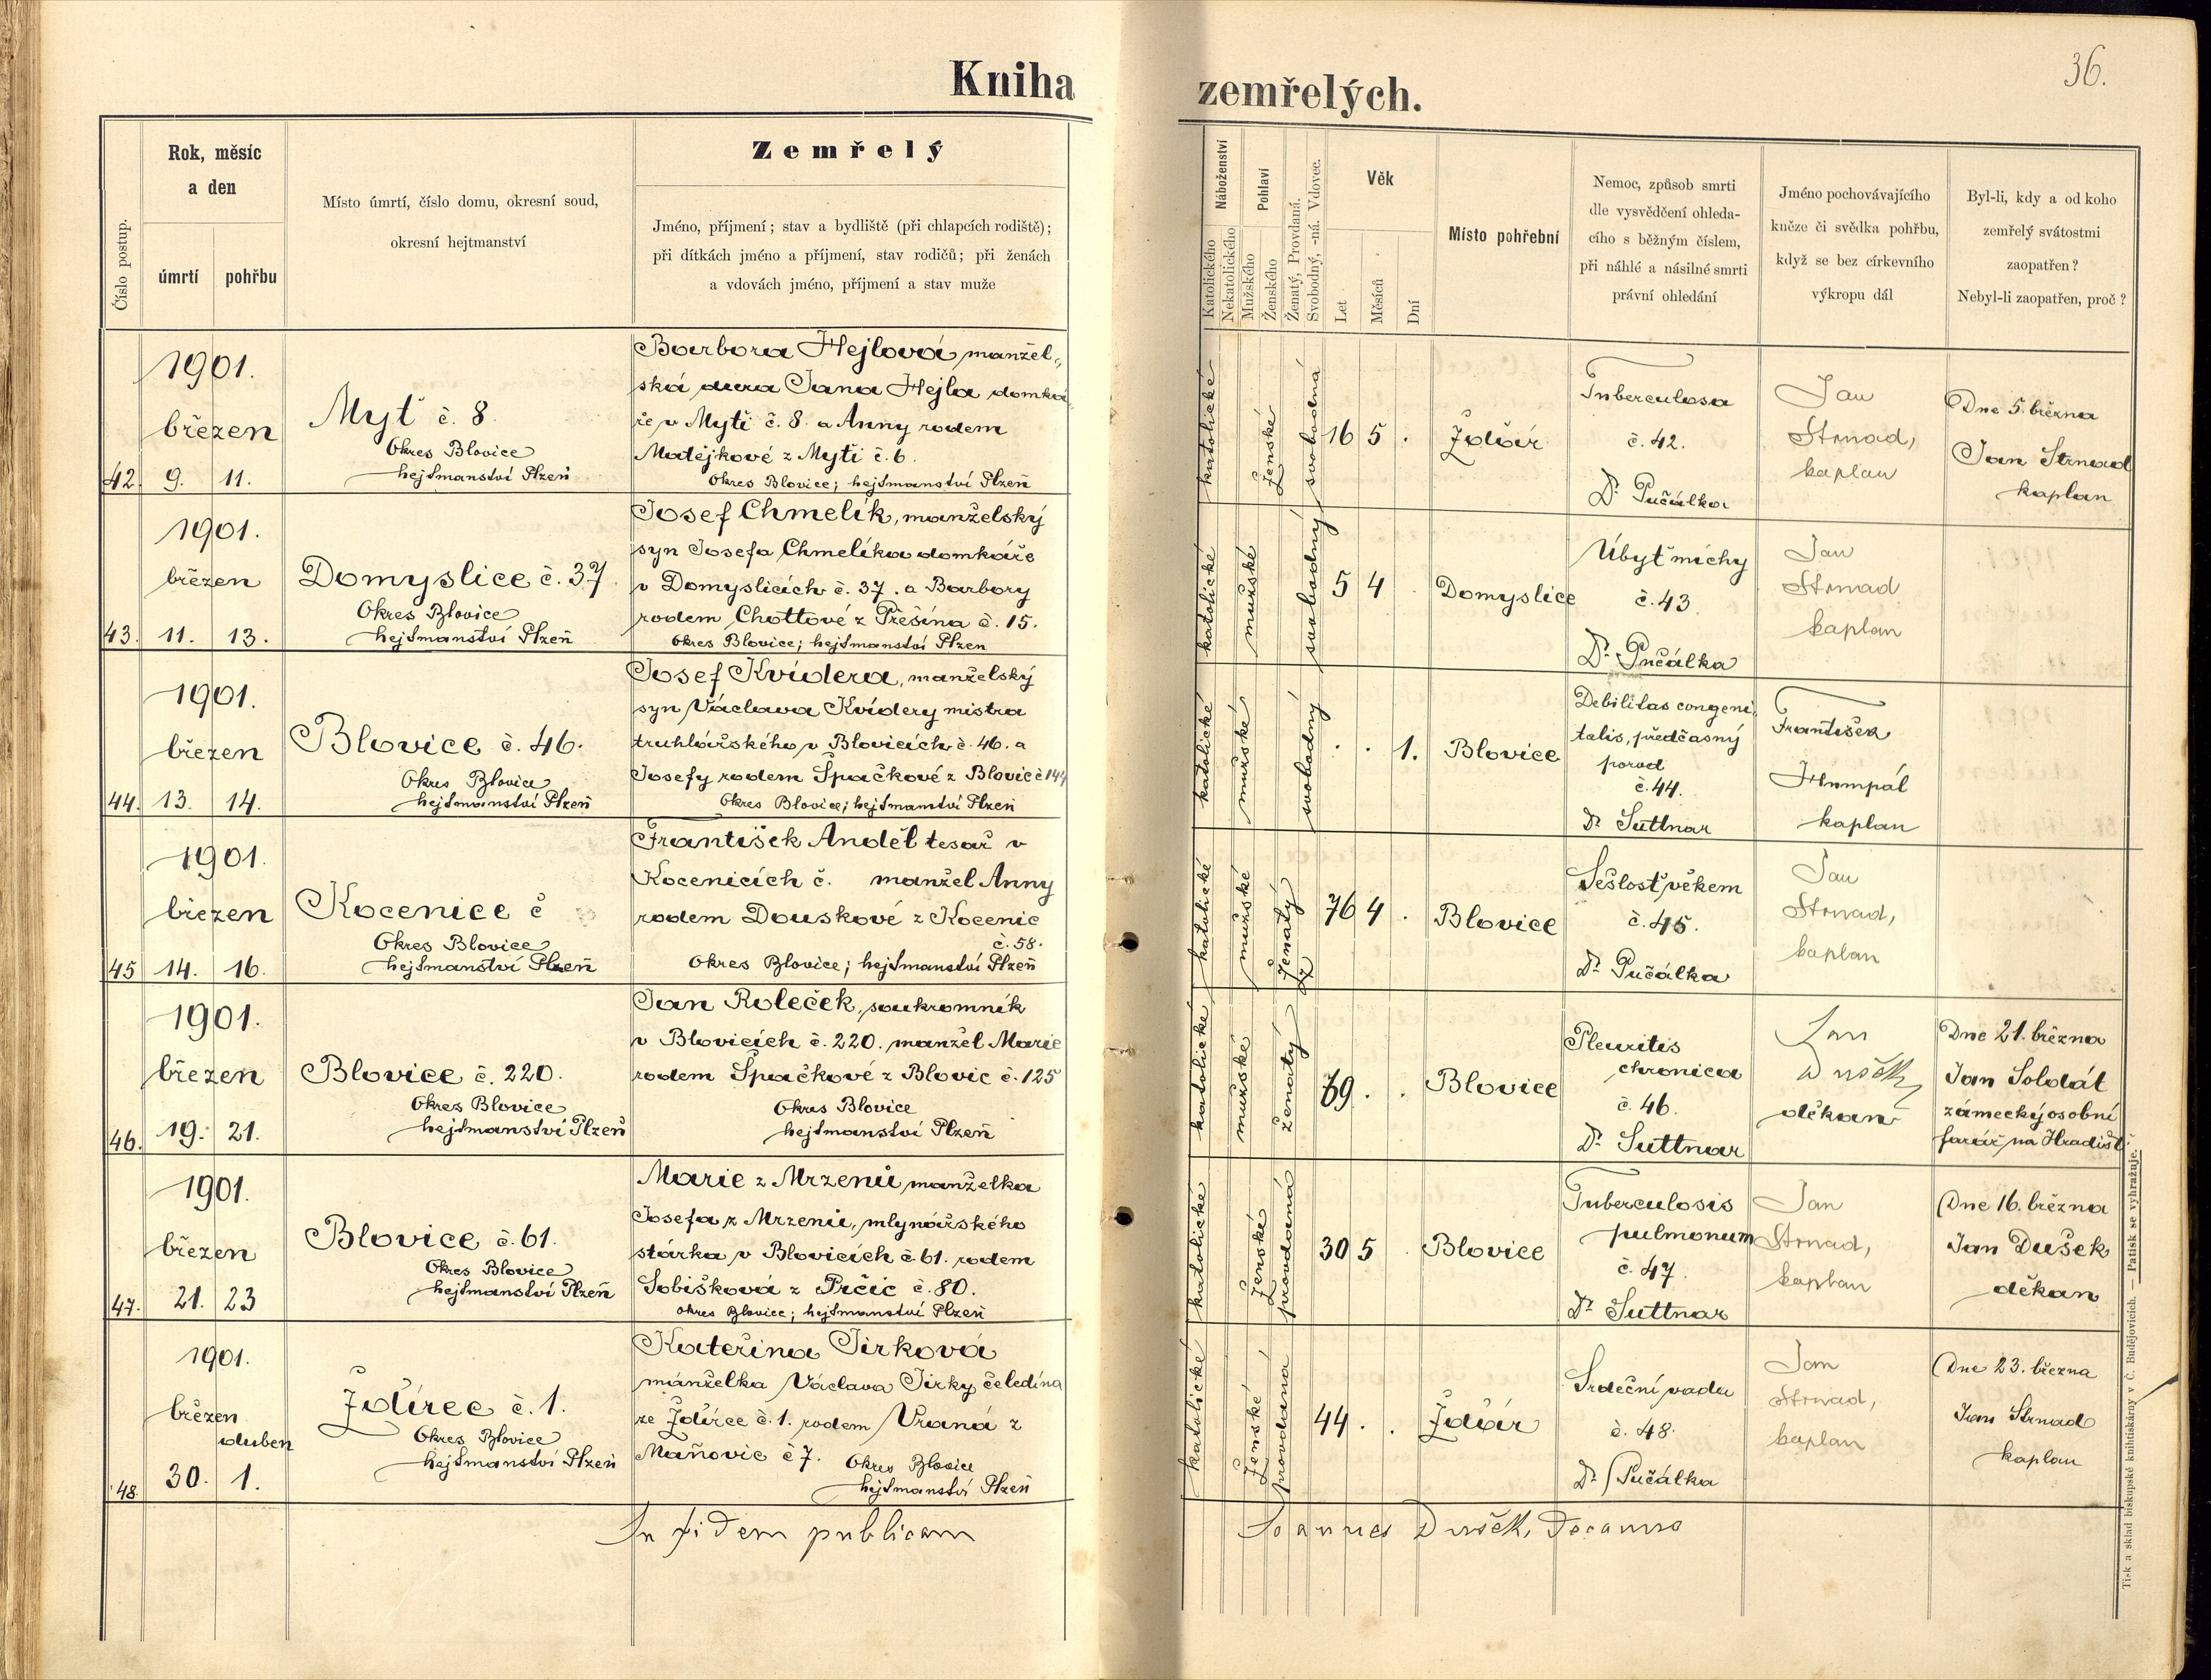 36.
Kniha zemřelých.
Číslo postup.
Rok, měsíc
a den
úmrtí
pohřbu
Místo úmrtí, číslo domu, okresní soud,
okresní hejtmanství
Zemřelý
Jméno, příjmení; stav a bydliště (při chlapcích rodiště);
při dítkách jméno a příjmení, stav rodičů; při ženách
a vdovách jméno, příjmení a stav muže
Náboženství
Katolického
Nekatolického
Pohlaví
Mužského
Ženského
Ženatý, Provdaná.
Svobodný, -ná. Vdovec.
Věk
Let
Měsíců
Dní
Místo pohřební
Nemoc, způsob smrti
dle vysvědčení ohleda-
cího s běžným číslem,
při náhlé a násilné smrti
právní ohledání
Jméno pochovávajícího
kněze či svědka pohřbu,
když se bez církevního
výkropu dál
Byl-li, kdy a od koho
zemřelý svátostmi
zaopatřen?
Nebyl-li zaopatřen, proč?
42.
1901.
březen
9. 11.
Myť č. 8.
Okres Blovice
hejtmanství Plzeň
Barbora Hejlová manžel-
ská dcera Jana Hejla domká-
ře v Myti č. 8. a Anny rodem
Matějkové z Myti č. 6.
Okres Blovice; hejtmanství Plzeň
katolické
ženské
svobodná
16 5 .
Ždiár
Tuberculosa
č. 42.
Dr. Pučálka
Jan
Strnad,
kaplan
Dne 5. března
Jan Strnad
kaplan
43.
1901.
březen
11. 13.
Domyslice č. 37.
Okres Blovice
hejtmanství Plzeň
Josef Chmelík, manželský
syn Josefa Chmelíka domkáře
v Domyslicích č. 37. a Barbory
rodem Chottové z Přešína č. 15.
Okres Blovice; hejtmanství Plzen
katolické
mužské
svobodný
5 4 .
Domyslice
Úbyť míchy
č. 43.
Dr. Pučálka
Jan
Strnad
kaplan
44.
1901.
březen
13. 14.
Blovice č. 46.
Okres Blovice
hejtmanství Plzeň
Josef Kvídera, manželský
syn Václava Kvídery mistra
truhlářského v Blovicích č. 46. a
Josefy rodem Špačkové z Blovic č 144
Okres Blovice; hejtmanství Plzeň
katolické
mužské
svobodný
. . 1.
Blovice
Debilitas congeni-
talis, předčasný
porod
č. 44.
Dr Suttnar
František
Humpál
kaplan
45
1901.
březen
14. 16.
Kocenice č
Okres Blovice
hejtmanství Plzeň
František Anděl tesař v
Kocenicích č. manžel Anny
rodem Douskové z Kocenic
č. 58.
Okres Blovice; hejtmanství Plzeň
katolické
mužské
Ženatý
76 4 .
Blovice
Sešlosť věkem
č. 45.
Dr. Pučálka
Jan
Strnad,
kaplan
46.
1901.
březen
19. 21.
Blovice č. 220.
Okres Blovice
hejtmanství Plzeň
Jan Roleček, soukromník
v Blovicích č. 220. manžel Marie
rodem Špačkové z Blovic č. 125
Okres Blovice
hejtmanství Plzeň
katolické
mužské
ženatý
69 . .
Blovice
Pleuritis
chronica
č. 46.
Dr. Suttnar
Jan
Dušek,
děkan
Dne 21. března
Jan Soldát
zámecký osobní
farář na Hradišti.
47.
1901.
březen
21. 23
Blovice č. 61.
Okres Blovice
hejtmanství Plzeň
Marie z Mrzenů manželka
Josefa z Mrzenů, mlynářského
stárka v Blovicích č. 61. rodem
Sobišková z Prčic č. 80.
Okres Blovice; hejtmanství Plzeň
katolické
Ženská
provdaná
30 5 .
Blovice
Tuberculosis
pulmonum
č. 47.
Dr Suttnar
Jan
Strnad,
kaplan
Dne 16. března
Jan Dušek
děkan
48.
1901.
březen
duben
30. 1.
Ždírec č. 1.
Okres Blovice
hejtmanství Plzeň
Kateřina Jirková
manželka Václava Jirky čeledína
ze Ždírce č. 1. rodem Vraná z
Maňovic č 7. Okres Blovice
hejtmanství Plzeň
katolické
Ženské
provdaná
44 . .
Ždiár
Srdeční vada
č. 48.
Dr. Pučálka
Jan
Strnad,
kaplan
Dne 23. března
Jan Strnad
kaplan
In fidem publicam Joannes Dušek, Decanus
Tisk a sklad biskupské knihtiskárny v Č. Budějovicích. — Patisk se vyhražuje.